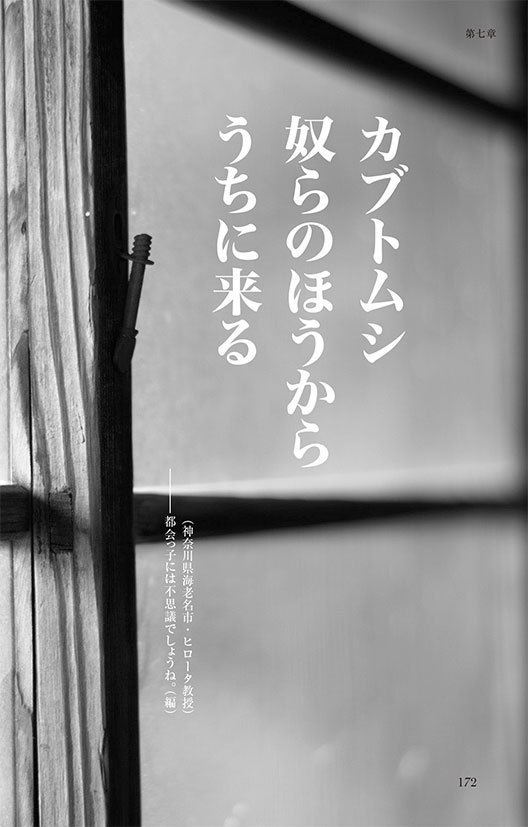 第七章
カブトムシ
奴らのほうから
うちに来る
(神奈川県海老名市・ヒロータ教授)
──都会っ子には不思議でしょうね。(編)
172